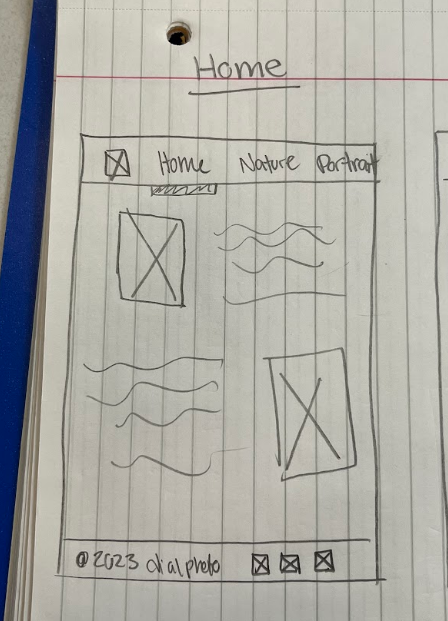 Home
Home Nature Portrait
@2023 dialphoto